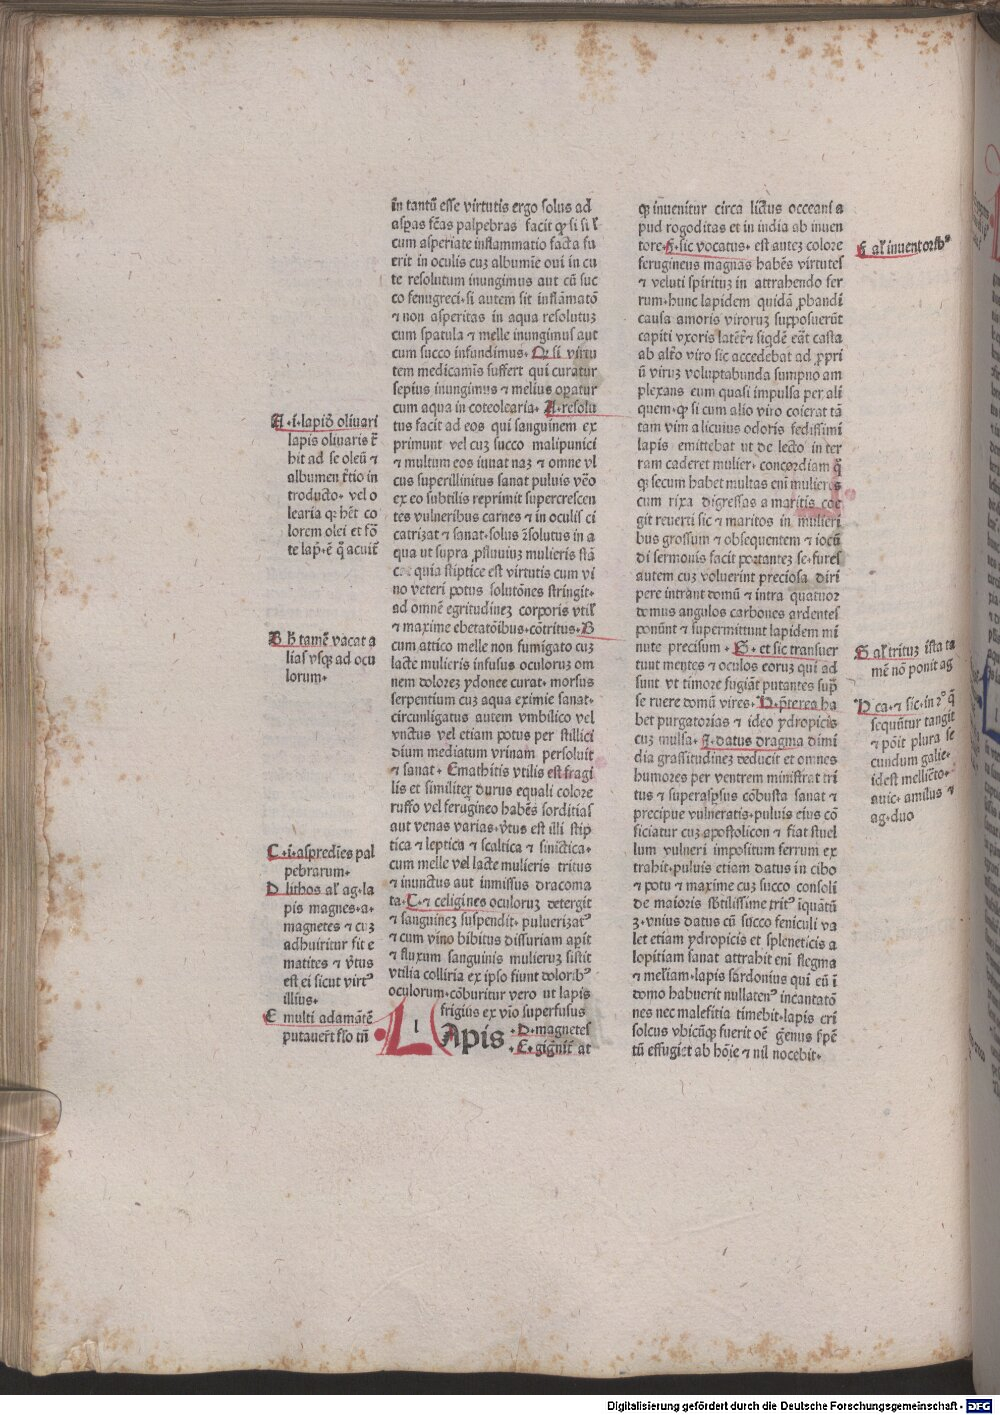 in tantū esse virtutis ergo solus ad
asp̱as fēas palpebras facit qꝫ si sit
cum asperiate inflammatio facta fu
erit in oculis cuꝫ albumīe oui in cu
te resolutum inungimus aut cū suc
co fenugreci·si autem sit inflāmatō
⁊ non asperitas in aqua resolutuꝫ
cum spatula ⁊ melle inungimus aut
cum succo infundimus· Qꝫ si virtu
tem medicamīs suffert qui curatur
sepius inungimus ⁊ melius opatur
cum aqua in coteolearia· A·resolu
tus facit ad eos qui sanguinem ex
primunt vel cuꝫ succo malipunici
⁊ multum eos iuuat naꝫ ⁊ omne vl
cus superillinitus sanat puluis vēo
ex eo subtilis reprimit supercrescen
tes vulneribus carnes ⁊ in oculis ci
catrizat ⁊ sanat·solus r̄solutus in a
qua ut supra ꝓfluuiuꝫ mulieris stā
quia stiptice est virtutis cum vi
no veteri potus solutōnes stringit·
ad omnē egritudineꝫ corporis vtił
⁊ maxime ebetatōibus·cōtritus· B
cum attico melle non fumigato cuꝫ
lacte mulieris infusus oculoruꝫ om
nem doloreꝫ ydonee curat· morsus
serpentium cuꝫ aqua eximie sanat·
circunligatus autem vmbilico vel
vnctus vel etiam potus per stillici
dium mediatum vrinam persoluit
⁊ sanat· Emathitis vtilis est fragi
lis et similiter durus equali colore
ruffo vel ferugineo habēs sorditias
aut venas varias·v̄tus est illi stip
tica ⁊ leptica ⁊ scaltica ⁊ sinictica·
cum melle vel lacte mulieris tritus
⁊ inunctus aut inmissus dracoma
ta· C·⁊ celigines oculoruꝫ detergit
⁊ sanguineꝫ suspendit· puluerizatꝰ
⁊ cum vino bibitus dissuriam apit
⁊ fluxum sanguinis mulieruꝫ sistit
vtilia colliria ex ipso fiunt doloribꝰ
oculorum·cōburitur vero ut lapis
frigius ex vīo superfusus
l
Apis ·D·magnetes
·E·gignit̄ at
A·i·lapiō oliuari
lapis oliuaris r̄
hit ad se oleū ⁊
albumen r̄tio in
troducto· vel o
learia qꝫ hēt co
lorem olei et fō
te lap̄·ē q̄ acuit̄
B h̄ tamē vacat a
lias vsqꝫ ad ocu
lorum·
C·i·aspredīes pal
pebrarum·
D lithos ał ag·la
pis magnes·a·
magnetes ⁊ cuꝫ
adhuiritur fit e
matites ⁊ v̄tus
est ei sicut virtꝰ
illius·
E multi adamātē
putauer̄t sło tn̄
qꝫ inuenitur circa litꝰus occeani a
pud rogoditas et in india ab inuen
tore· F·sic vocatus· est auteꝫ colore
ferugineus magnas habēs virtutes
⁊ veluti spirituꝫ in attrahendo fer
rum·hunc lapidem quidā ꝓbandi
causa amoris viroruꝫ supposuerūt
capiti vxoris latēt̄ ⁊ siqdē eāt casta
ab altōo viro sic accedebat ad ꝓpri
ū viruꝫ voluptabunda sumpno am
plexans eum quasi impulsa per ali
quem·qꝫ si cum alio viro coierat tā
tam vim alicuius odoris fedissimi
lapis emittebat ut de lecto in ter
ram caderet mulier· concordiam q̄
qꝫ secum habet multas eni mulieres
cum rixa digressas a maritis coe
git reuerti sic ⁊ maritos in mulieri
bus grossum ⁊ obsequentem ⁊ iocū
di sermonis facit portanteꝫ se·fures
autem cuꝫ voluerint preciosa diri
pere intrant domū ⁊ intra quatuor
domus angulos carbones ardentes
ponūnt ⁊ supermittunt lapidem mi
nute precisum· G· et sic transuer
tunt mentes ⁊ oculos eoruꝫ qui ad
sunt vt timore fugiāt putantes sup̄
se ruere domū vires· H·p̄terea ha
bet purgatorias ⁊ ideo ydropicis
cuꝫ mulsa· I·datus dragma dimi
dia grassitudineꝫ deducit et omnes
humores per ventrem ministrat tri
tus ⁊ superasp̱sus cōbusta sanat ⁊
precipue vulneratis·puluis eius cō
ficiatur cuꝫ apostolicon ⁊ fiat stuel
lum vulneri impositum ferrum ex
trahit·puluis etiam datus in cibo
⁊ potu ⁊ maxime cuꝫ succo consoli
de maioris sb̄tilissime tritꝰ īquātū
ꝫ·vnius datus cū succo feniculi va
let etiam ydropicis et spleneticis a
lopitiam sanat attrahit eni flegma
⁊ mełiam·lapis sardonius qui eū ī
domo habuerit nullatenꝰ incantatō
nes nec malefitia timebit·lapis cri
solcus vbicūqꝫ fuerit oē g̱enus sp̱ē
tū effugiet ab hōie ⁊ nil nocebit·
F ał inuentoribꝰ
G ał trituꝫ ista ta
mē nō ponit ag
H ca·⁊ sic·in rꝰ q̄
sequn̄tur tangit
⁊ pōit plura se
cundum galie·
idest mellicr̄to·
auic· amilus ⁊
ag·duo
Digitalisierung gefördert durch die Deutsche Forschungsgemeinschaft · DFG